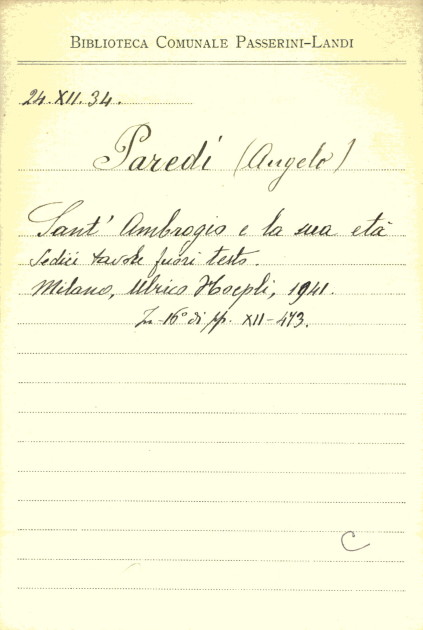 BIBLIOTECA COMUNALE PASSERINI-LANDI
24.XII.34.
Paredi (Angelo)
Sant' Ambrogio e la sua età
Sedici tavole fuori testo.
Milano, Ulrico Hoepli, 1941.
In-16° di pp. XII-473.
C